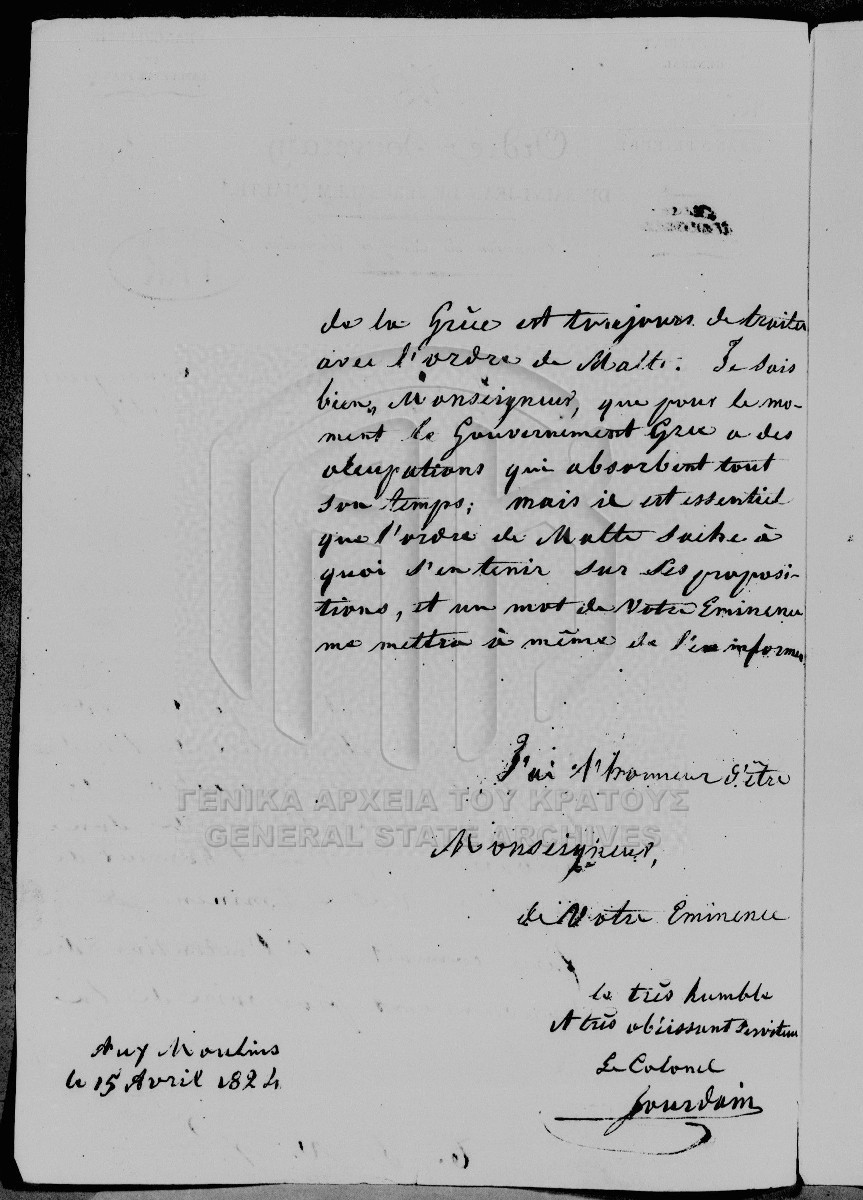 de la Grèce est toujours de traiter
avec l'ordre de Malte. Je sais
bien, Monseigneur, que pour le mo-
ment le Gouvernement Grec a des
occupations qui absorbent tout
son temps; mais il est essentiel
que l'ordre de Malte sache à
quoi s'en tenir sur ses proposi-
tions, et un mot de Votre Eminence
me mettra à même de l'en informer.
J'ai l'honneur d'être
ΓΕΝΙΚΑ ΑΡΧΕΙΑ ΤΟΥ ΚΡΑΤΟΥΣ
GENERAL STATE ARCHIVES
Monseigneur,
de Votre Eminence
le très humble
& très obéissant serviteur
Le Colonel
Jourdain
Aux Moulins
le 15 Avril 1824